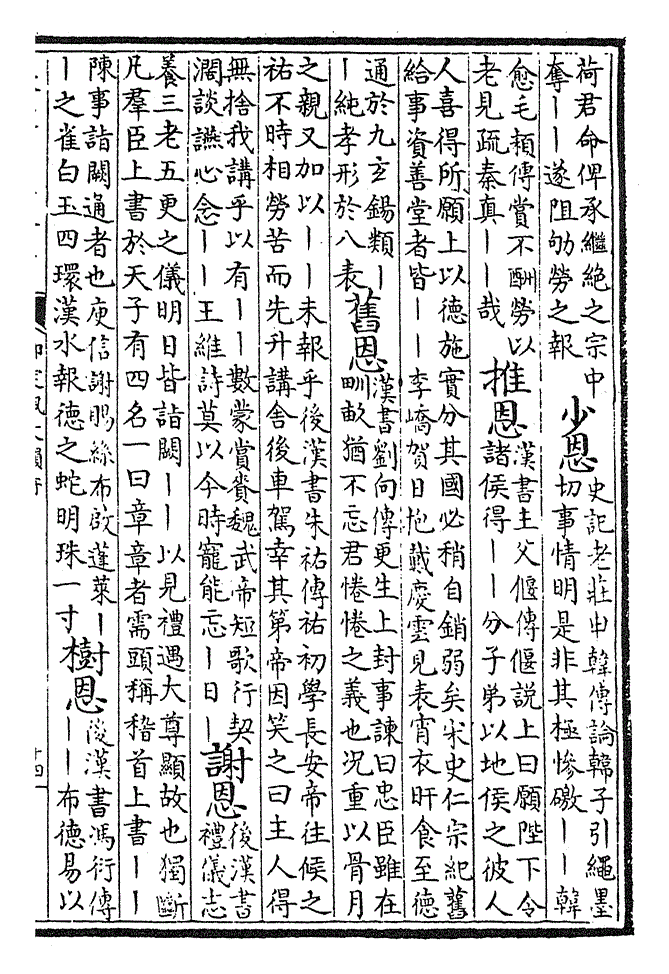 荷君命俾承繼絕之宗中
奪——遂阻劬勞之報
少恩
史記老莊申韓傳論韓子引繩墨
切事情明是非其極慘礉——韓
愈毛穎傳賞不酬勞以
老見疏秦真——哉
推恩
漢書主父偃傳偃說上曰願陛下令
諸侯得——分子弟以地侯之彼人
人喜得所願上以德施實分其國必稍自銷弱矣宋史仁宗紀舊
給事資善堂者皆——李嶠賀日抱戴慶雲見表宵衣旰食至德
通於九玄錫類—
—純孝形於八表
舊恩
漢書劉向傳更生上封事諫曰忠臣雖在
甽畝猶不忘君惓惓之義也況重以骨月
之親又加以——未報乎後漢書朱祐傳祐初學長安帝往候之
祐不時相勞苦而先升講舍後車駕幸其第帝因笑之曰主人得
無捨我講乎以有——數蒙賞賚魏武帝短歌行契
濶談讌心念——王維詩莫以今時寵能忘—日—
謝恩
後漢書
禮儀志
養三老五更之儀明日皆詣闕——以見禮遇大尊顯故也獨斷
凡羣臣上書於天子有四名一曰章章者需頭稱稽首上書——
陳事詣闕通者也庾信謝賜絲布啟蓬萊—
—之雀白玉四環漢水報德之蛇明珠一寸
樹恩
後漢書馮衍傳
——布德易以